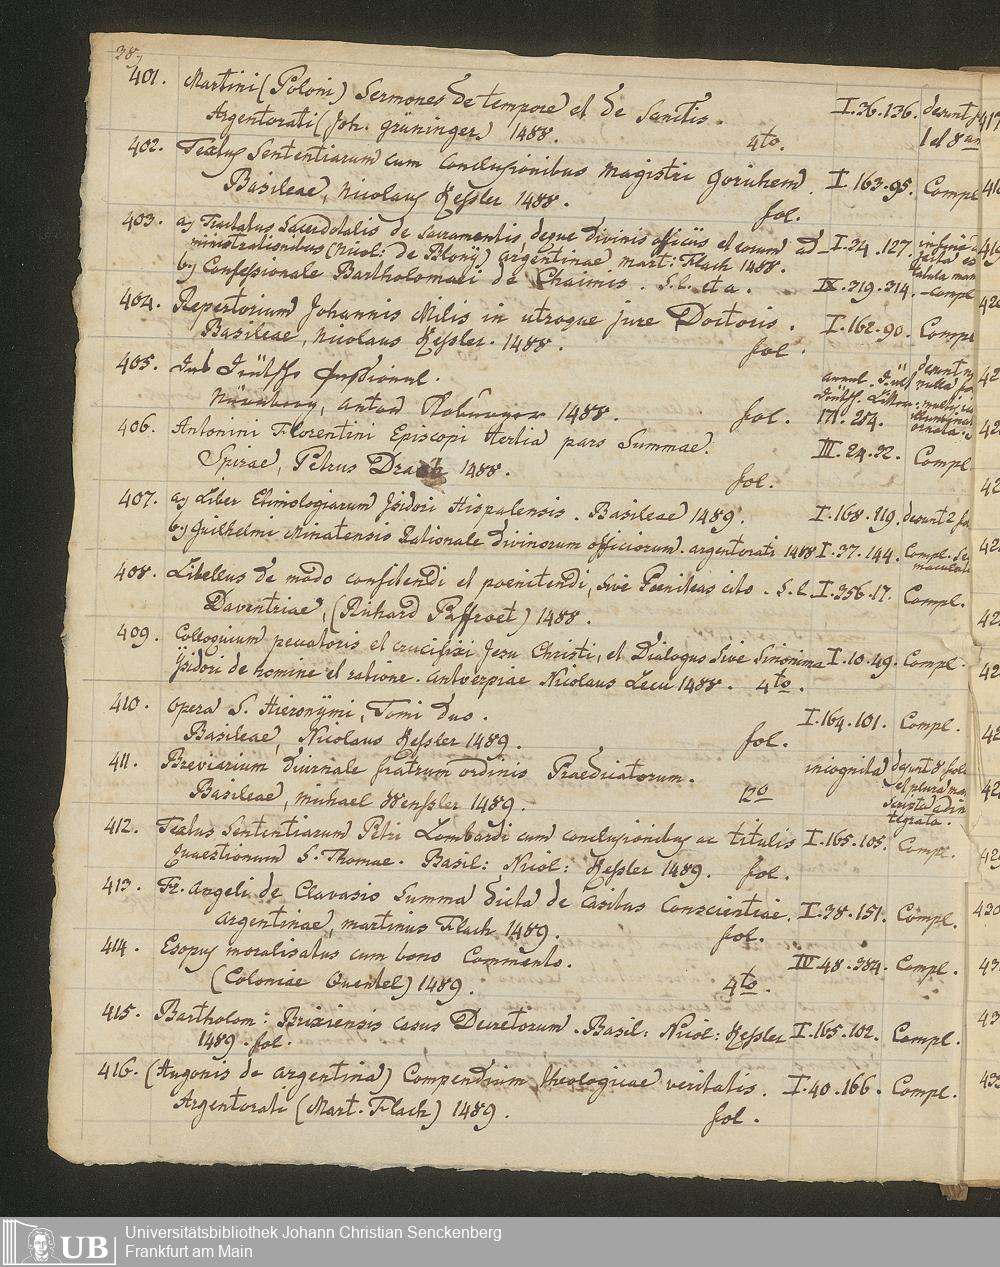 38.
401. Martini (Poloni) Sermones de tempore et de Sanctis. I.36.136. desunt
Argentorati (Joh. grüninger) 1488. 4to. 1 et 8
402. Textus Sententiarum cum Conclusionibus magistri gorichem. I.163.95. Compl
Basileae, Nicolaus Kessler 1488. fol.
403. a) Tractatus Sacerdotalis de Sacramentis, deque divinis officiis et eorum ad I.34.127. in fine
ministrationibus (Nicol: de Blony) argentinae mart: Flach 1488. tabula man
b) Confessionale Bartholomaei de Chaimis. S.l. et a. IV.319.314. – compl
404. Repertorium Johannis Milis in utroque jure Doctoris. I.162.90. Comp
Basileae, Nicolaus Kessler. 1488. fol.
405. Passional. annal. desunt
Nürnberg, Anton Koburger 1488. fol. 171.254. ornata.
406. Antonini Florentini Episcopi tertia pars Summae. III.24.22. Compl.
Spirae, Petrus Drach 1488. fol.
407. a) Liber Etimologiarum Isidori Hispalensis. Basileae 1489. I.168.119. desunt 2 fo
b) Guilhelmi Minatensis Rationale divinorum officiorum. argentorati 1488 I.37.144. Compl. sed
maculat
408. Libellus de modo confitendi et poenitendi, sive Poeniteas cito. S.l. I.356.17. Compl.
Daventriae, (Richard Paffroet) 1488.
409. Colloquium peccatoris et crucifixi Jesu Christi, et Dialogus sive Sinonima I.10.49. Compl.
Ysidori de homine et ratione. antverpiae Nicolaus Leeu 1488. 4to.
410. Opera S. Hieronymi, Tomi duo. I.164.101. Compl.
Basileae, Nicolaus Kessler 1489. fol.
411. Breviarium diurnale fratrum ordinis Praedicatorum. incognita desunt 8 fol
Basileae, michael Wenssler 1489. 12o et plura man
scripta adin
tegrata.
412. Textus Sententiarum Petri Lombardi cum conclusionibus ac titulis I.165.105. Compl.
Quaestionum S. Thomae. Basil: Nicol: Kessler 1489. fol.
413. Fr. Angeli de Clavasio Summa dicta de Casibus Conscientiae. I.38.151. Compl.
argentinae, martinus Flach 1489. fol.
414. Esopus moralisatus cum bono Commento. IV.48.384. Compl.
(Coloniae Quentel) 1489. 4to.
415. Bartholom: Brixiensis casus Decretorum. Basil: Nicol: Kessler I.165.102. Compl.
1489. fol.
416. (Hugonis de argentina) Compendium theologicae veritatis. I.40.166. Compl.
Argentorati (Mart. Flach) 1489. fol.
UB
Universitätsbibliothek Johann Christian Senckenberg
Frankfurt am Main